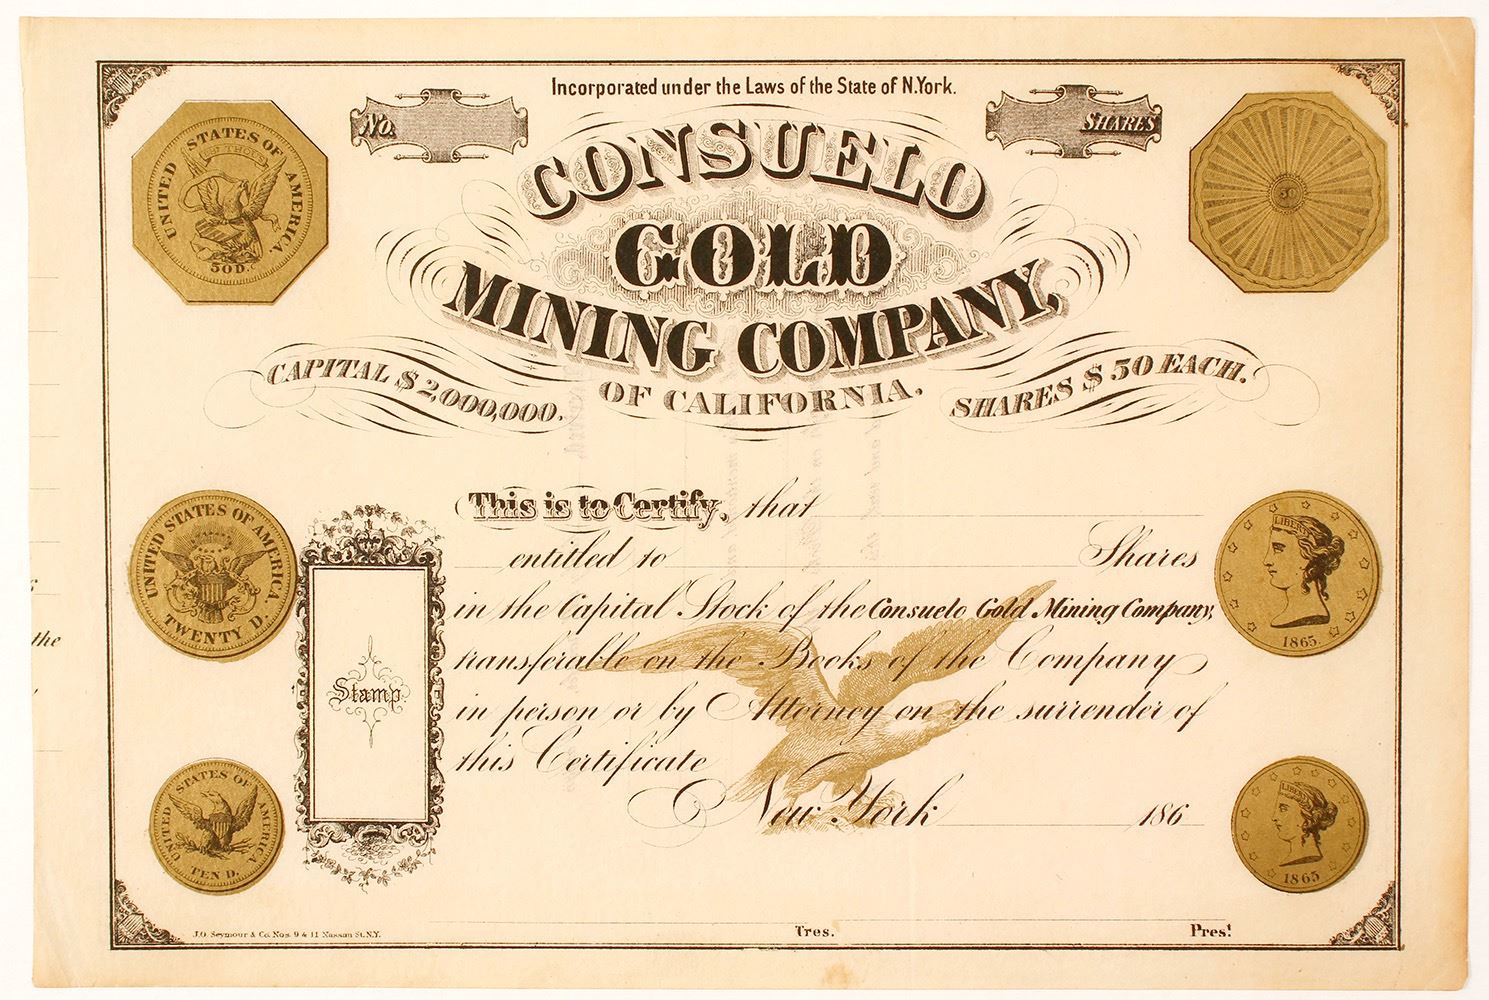 Incorporated under the Laws of the State of N.York.
No.
SHARES
CONSUELO
GOLD
MINING COMPANY,
OF CALIFORNIA.
CAPITAL $2,000,000.
SHARES $50 EACH.
UNITED STATES OF AMERICA.
50 D.
50
This is to Certify, that
entitled to Shares
in the Capital Stock of the Consuelo Gold Mining Company,
transferable on the Books of the Company
in person or by Attorney on the surrender of
this Certificate
New York 186
Stamp
UNITED STATES OF AMERICA.
TWENTY D.
LIBERTY
1865
UNITED STATES OF AMERICA
TEN D.
LIBERTY
1865
the
J.O. Seymour & Co. Nos. 9 & 11 Nassau St. N.Y.
Tres.
Prest